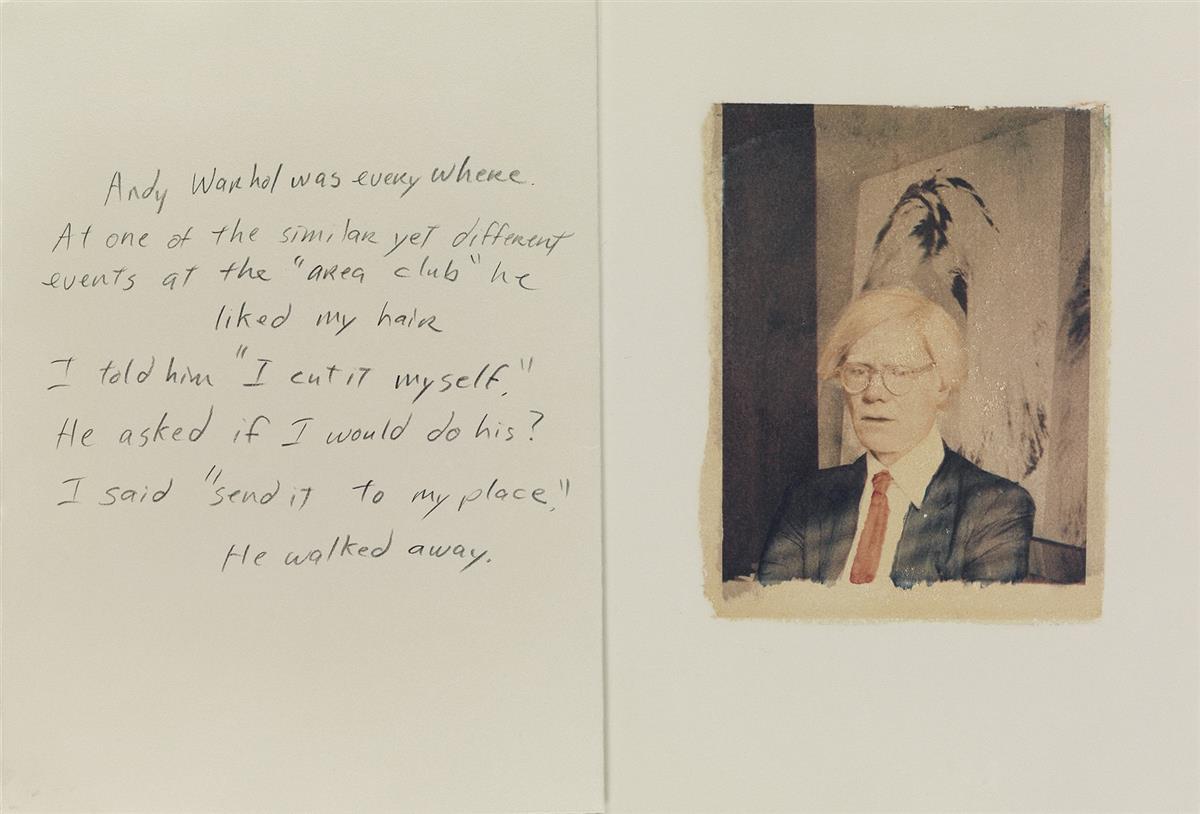 Andy Warhol was everywhere.
At one of the similar yet different
events at the "area club" he
liked my hair
I told him "I cut it myself."
He asked if I would do his?
I said "send it to my place."
He walked away.